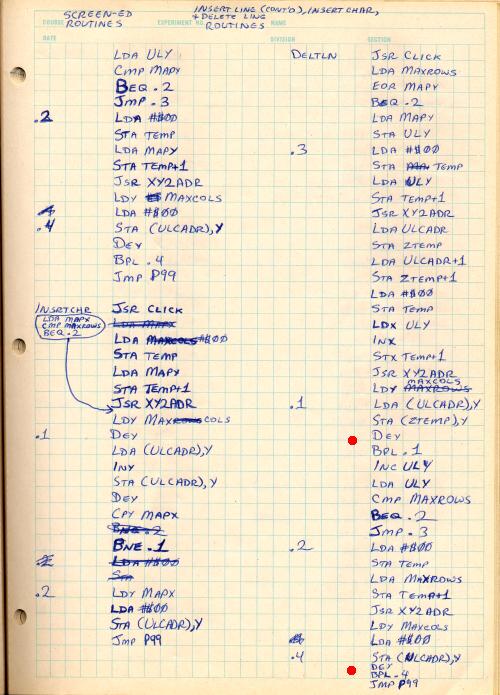 SCREEN-ED
ROUTINES
INSERT LINE (CONT'D), INSERT CHAR,
+ DELETE LINE
ROUTINES
COURSE
EXPERIMENT NO.
NAME
DATE
DIVISION
SECTION
LDA ULY
CMP MAPY
BEQ .2
JMP .3
.2 LDA #$00
STA TEMP
LDA MAPY
STA TEMP+1
JSR XY2ADR
LDY MAXCOLS
LDA #$00
.4 STA (ULCADR),Y
DEY
BPL .4
JMP P99
INSRTCHR JSR CLICK
LDA MAPX
CMP MAXROWS
BEQ .2
LDA MAPX
LDA MAXCOLS #$00
STA TEMP
LDA MAPY
STA TEMP+1
JSR XY2ADR
LDY MAXROWS COLS
.1 DEY
LDA (ULCADR),Y
INY
STA (ULCADR),Y
DEY
CPY MAPX
BNE .2
BNE .1
.2 LDA #$00
STA
.2 LDY MAPX
LDA #$00
STA (ULCADR),Y
JMP P99
DELTLN JSR CLICK
LDA MAXROWS
EOR MAPY
BEQ .2
LDA MAPY
STA ULY
.3 LDA #$00
STA TEMP
LDA ULY
STA TEMP+1
JSR XY2ADR
LDA ULCADR
STA ZTEMP
LDA ULCADR+1
STA ZTEMP+1
LDA #$00
STA TEMP
LDX ULY
INX
STX TEMP+1
JSR XY2ADR
MAXCOLS
LDY MAXROWS
.1 LDA (ULCADR),Y
STA (ZTEMP),Y
DEY
BPL .1
INC ULY
LDA ULY
CMP MAXROWS
BEQ .2
JMP .3
.2 LDA #$00
STA TEMP
LDA MAXROWS
STA TEMP+1
JSR XY2ADR
LDY MAXCOLS
LDA #$00
.4 STA (ULCADR),Y
DEY
BPL .4
JMP P99